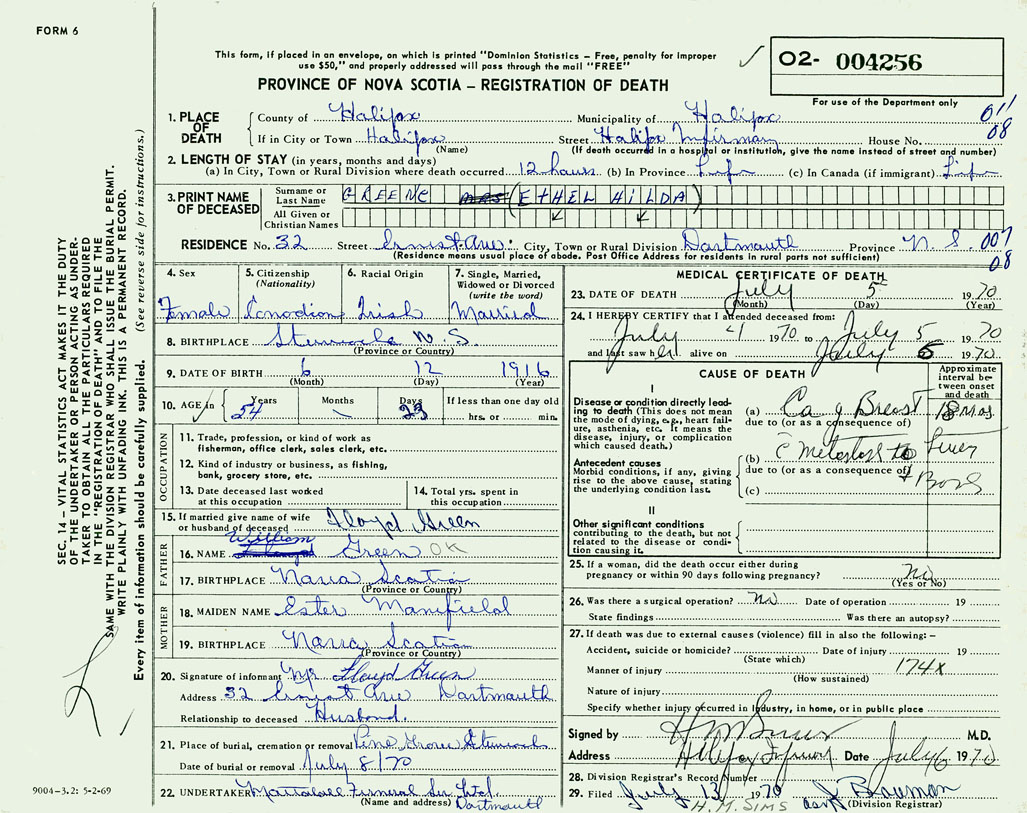 FORM 6
This form, if placed in an envelope, on which is printed "Dominion Statistics – Free, penalty for improper
use $50," and properly addressed will pass through the mail "FREE"
PROVINCE OF NOVA SCOTIA – REGISTRATION OF DEATH
O2- 004256
For use of the Department only
011
08
1. PLACE OF DEATH
County of Halifax Municipality of Halifax
If in City or Town Halifax Street Halifax Infirmary House No.
(Name) (If death occurred in a hospital or institution, give the name instead of street and number)
2. LENGTH OF STAY (in years, months and days)
(a) In City, Town or Rural Division where death occurred 12 hours (b) In Province Life (c) In Canada (if immigrant) Life
3. PRINT NAME OF DECEASED
Surname or Last Name GREENE MRS (ETHEL HILDA)
All Given or Christian Names
RESIDENCE No. 32 Street Ernest Ave. City, Town or Rural Division Dartmouth Province N. S. 007
(Residence means usual place of abode. Post Office Address for residents in rural parts not sufficient) 08
4. Sex Female
5. Citizenship (Nationality) Canadian
6. Racial Origin Irish
7. Single, Married, Widowed or Divorced (write the word) Married
8. BIRTHPLACE N. S.
(Province or Country)
9. DATE OF BIRTH 6 12 1916
(Month) (Day) (Year)
10. AGE in Years 54 Months \ Days 23 If less than one day old
hrs. or min.
OCCUPATION
11. Trade, profession, or kind of work as
fisherman, office clerk, sales clerk, etc.
12. Kind of industry or business, as fishing,
bank, grocery store, etc.
13. Date deceased last worked
at this occupation
14. Total yrs. spent in
this occupation
15. If married give name of wife
or husband of deceased Floyd Green
FATHER
William
16. NAME Green OK
17. BIRTHPLACE Nova Scotia
(Province or Country)
MOTHER
18. MAIDEN NAME Ester Manifield
19. BIRTHPLACE Nova Scotia
(Province or Country)
20. Signature of informant Mr. Floyd Green
Address 32 Ernest Ave Dartmouth
Relationship to deceased Husband.
21. Place of burial, cremation or removal Pine Grove
Date of burial or removal July 8/70
22. UNDERTAKER Mattatall Funeral Ser. Ltd.
(Name and address) Dartmouth
MEDICAL CERTIFICATE OF DEATH
23. DATE OF DEATH July 5 1970
(Month) (Day) (Year)
24. I HEREBY CERTIFY that I attended deceased from:
July 4 1970 to July 5 1970
and last saw her alive on July 5 1970
CAUSE OF DEATH
Approximate interval between onset and death
I
Disease or condition directly leading to death (This does not mean the mode of dying, e.g., heart failure, asthenia, etc. It means the disease, injury, or complication which caused death.)
(a) Ca of Breast 18 mos
due to (or as a consequence of)
Antecedent causes
Morbid conditions, if any, giving rise to the above cause, stating the underlying condition last.
(b) c̄ Metastases to Liver
due to (or as a consequence of) + Bone
(c)
II
Other significant conditions
contributing to the death, but not related to the disease or condition causing it.
25. If a woman, did the death occur either during
pregnancy or within 90 days following pregnancy? No
(Yes or No)
26. Was there a surgical operation? No Date of operation 19
State findings Was there an autopsy?
27. If death was due to external causes (violence) fill in also the following:–
Accident, suicide or homicide? Date of injury 19
(State which)
Manner of injury 174X
(How sustained)
Nature of injury
Specify whether injury occurred in industry, in home, or in public place
Signed by M.D.
Address Halifax Infirmary Date July 6 1970
28. Division Registrar's Record Number
29. Filed July 13 1970 J Bauman
H. M. SIMS (Division Registrar)
SEC. 14 – VITAL STATISTICS ACT MAKES IT THE DUTY
OF THE UNDERTAKER OR PERSON ACTING AS UNDERTAKER TO OBTAIN ALL THE PARTICULARS REQUIRED
IN THE "REGISTRATION OF DEATH" AND TO FILE THE
SAME WITH THE DIVISION REGISTRAR WHO SHALL ISSUE THE BURIAL PERMIT.
WRITE PLAINLY WITH UNFADING INK. THIS IS A PERMANENT RECORD.
Every item of information should be carefully supplied. (See reverse side for instructions.)
9004-3.2: 5-2-69